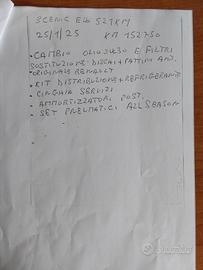 SCENIC
25/1/25 KM 152750
• CAMBIO OLIO 5W30 E FILTRI
SOSTITUZIONE DISCHI + PATTINI ANT.
ORIGINALI RENAULT
• KIT DISTRIBUZIONE + REFRIGERANTE
• CINGHIA SERVIZI
• AMMORTIZZATORI POST.
• SET PNEUMATICI ALL SEASON
subito